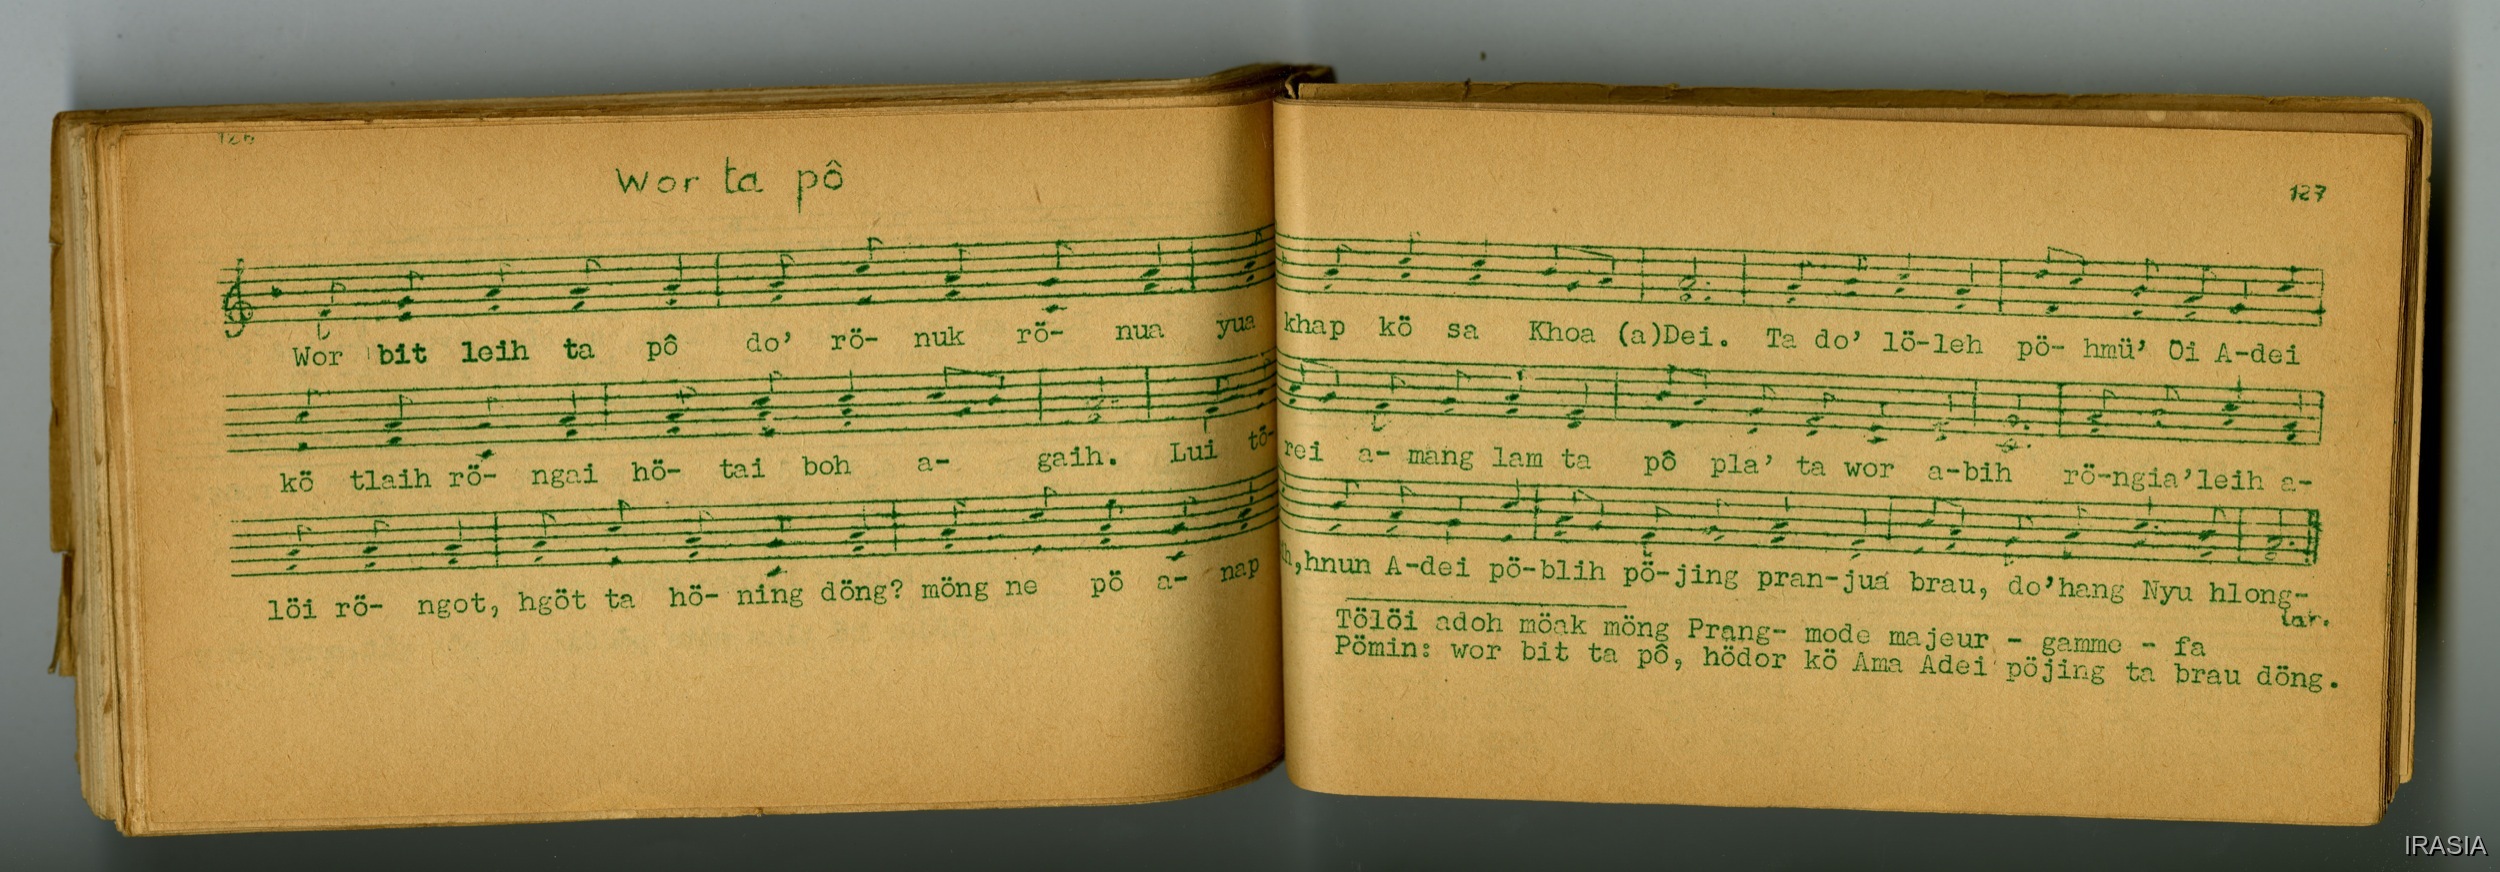 126
Wor ta pô
127
Wor bit leih ta pô do' rö- nuk rö- nua yua khap kö sa Khoa (a)Dei. Ta do' lö-leh pö- hmü' Oi A-dei
kö tlaih rö- ngai hö- tai boh a- gaih. Lui tö- rei a- mang lam ta pô pla' ta wor a-bih rö-ngia'leih a-
löi rö- ngot, hgöt ta hö- ning döng? möng ne pö a- nap ih,hnun A-dei pö-blih pö-jing pran-jua brau, do'hang Nyu hlong-
lar.
Tölöi adoh möak möng Prang- mode majeur - gamme - fa
Pömin: wor bit ta pô, hödor kö Ama Adei pöjing ta brau döng.
IRASIA